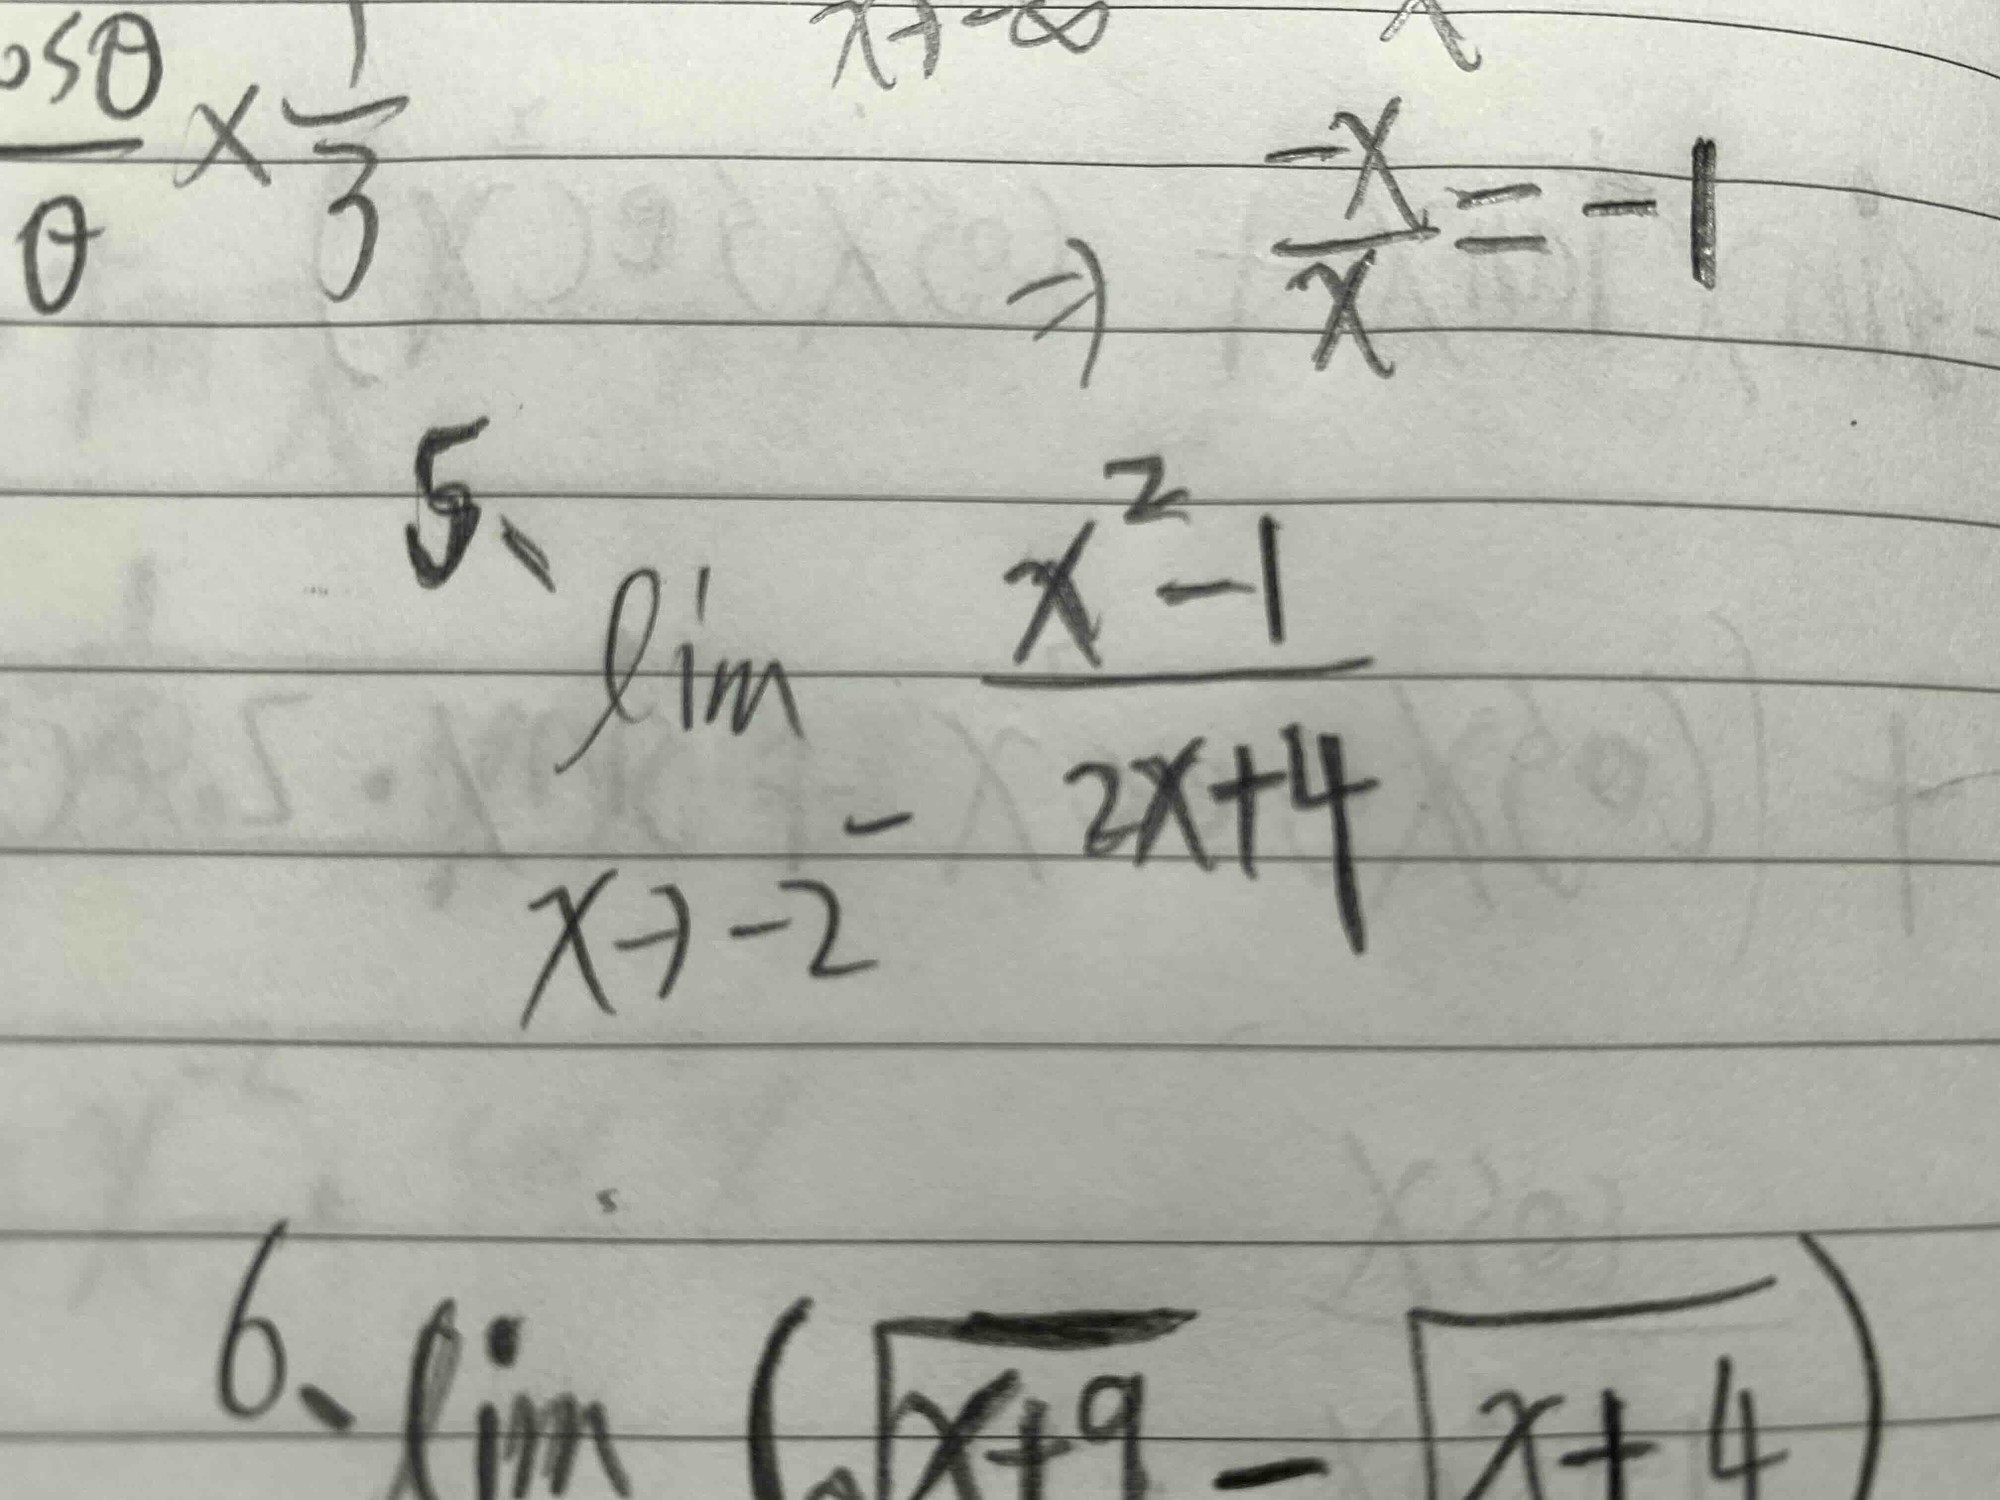 osθ/θ × 1/3
x→-∞ x
⇒ -x/x = -1
5、 lim x→-2⁻ (x²-1)/(2x+4)
6、 lim (√(x+9) - √(x+4))